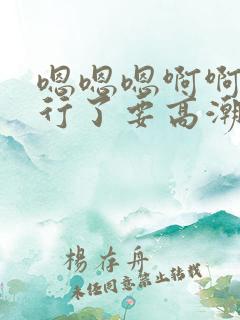 嗯嗯嗯啊啊
行了要高潮
楊存舟
未经同意禁止转载